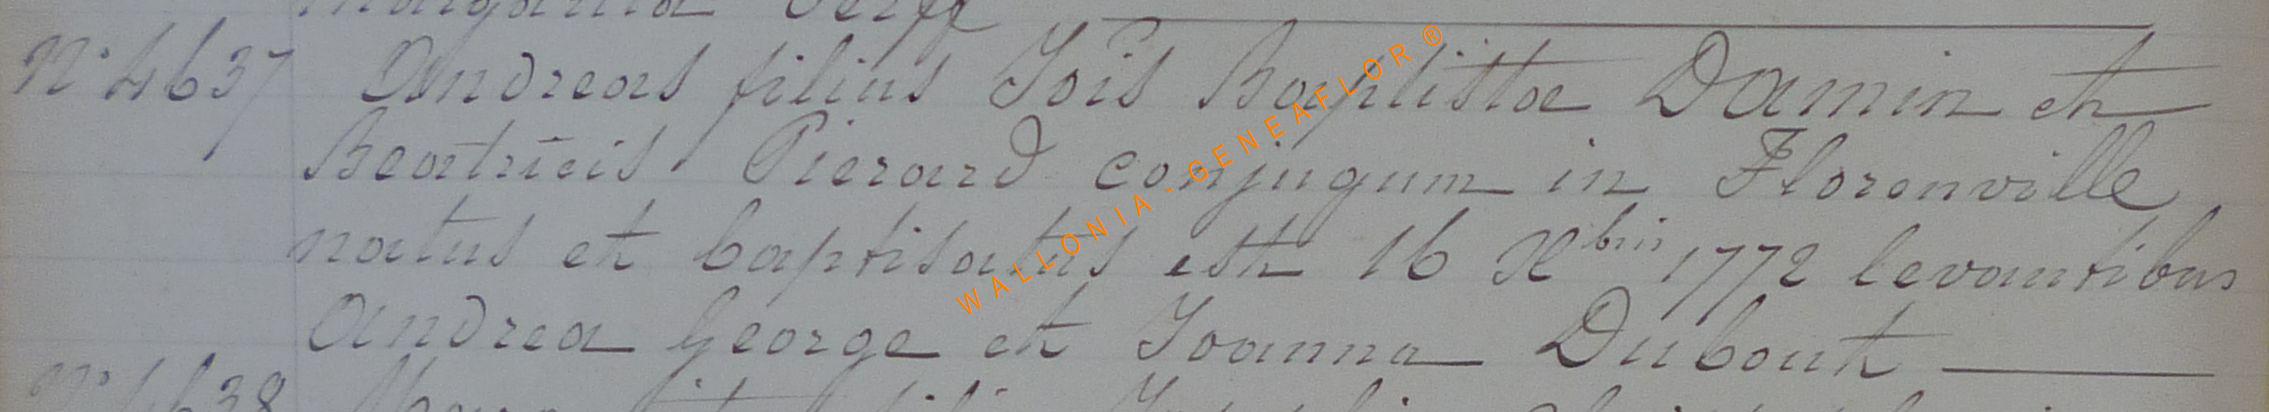 Margarita
N° 4637 Andreas filius Jois Baptista Damin et
Beatricis Pierard conjugum in Florenville
natus et baptisatus est 16 Xbris 1772 levantibus
Andrea George et Joanna Dubout
N° 4638
WALLONIA-GENEAFLOR®